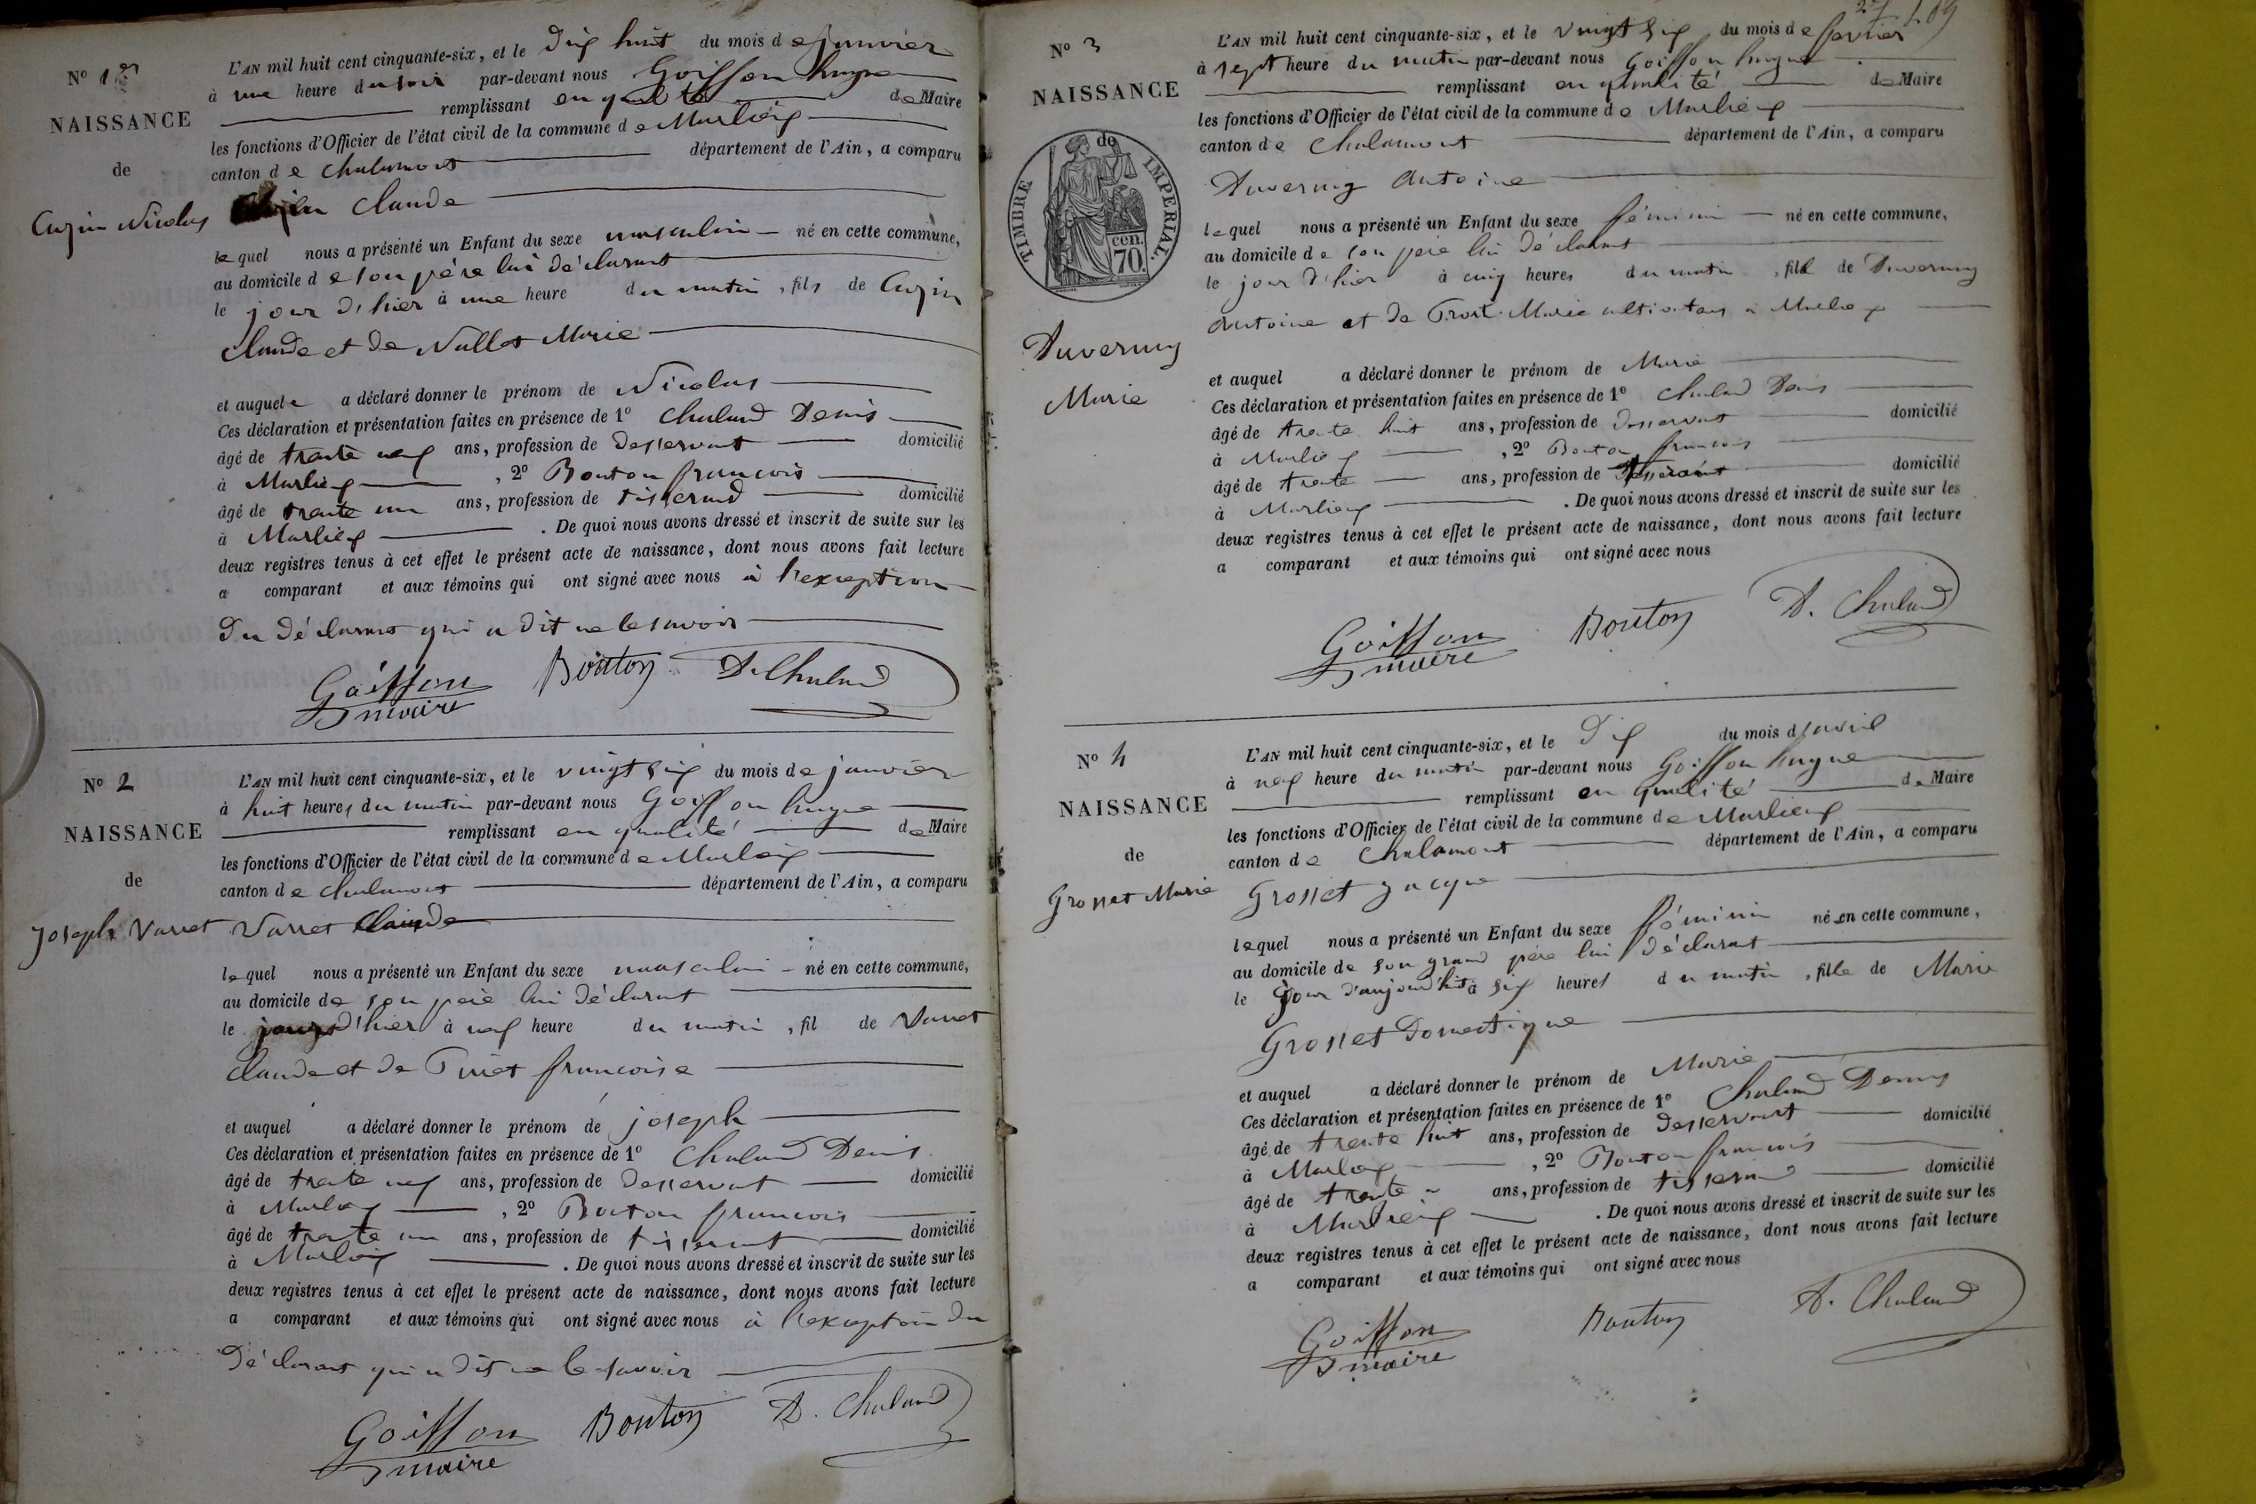 N° 1er
NAISSANCE
de
Cuzin Nicolas
L'AN mil huit cent cinquante-six, et le dix huit du mois de janvier
à une heure du soir par-devant nous Goiffon hugue
remplissant en qualité de Maire
les fonctions d'Officier de l'état civil de la commune de Marlieux
canton de Chalamont département de l'Ain, a comparu
Cuzin Claude
lequel nous a présenté un Enfant du sexe masculin né en cette commune,
au domicile de son père lui déclarant
le jour d'hier à une heure du matin, fils de Cuzin
Claude et de Nallet Marie
et auquel a déclaré donner le prénom de Nicolas
Ces déclaration et présentation faites en présence de 1° Chaland Denis
âgé de trante neuf ans, profession de desservant domicilié
à Marlieux, 2° Bouton francois
âgé de trante un ans, profession de tisserand domicilié
à Marlieux. De quoi nous avons dressé et inscrit de suite sur les
deux registres tenus à cet effet le présent acte de naissance, dont nous avons fait lecture
a comparant et aux témoins qui ont signé avec nous à l'exception
du déclarant qui a dit ne le savoir
Goiffon Bouton D. Chaland
maire
N° 2
NAISSANCE
de
Joseph Varret
L'AN mil huit cent cinquante-six, et le vingt six du mois de janvier
à huit heures du matin par-devant nous Goiffon hugue
remplissant en qualité de Maire
les fonctions d'Officier de l'état civil de la commune de Marlieux
canton de Chalamont département de l'Ain, a comparu
Varret Claude
lequel nous a présenté un Enfant du sexe masculin né en cette commune,
au domicile de son père lui déclarant
le jour d'hier à neuf heure du matin, fil de Varret
Claude et de francoise
et auquel a déclaré donner le prénom de joseph
Ces déclaration et présentation faites en présence de 1° Chaland Denis
âgé de trente neuf ans, profession de desservant domicilié
à Marlieux, 2° Bouton francois
âgé de trente un ans, profession de tisserant domicilié
à Marlieux. De quoi nous avons dressé et inscrit de suite sur les
deux registres tenus à cet effet le présent acte de naissance, dont nous avons fait lecture
a comparant et aux témoins qui ont signé avec nous à l'exception du
déclarant qui a dit ne le savoir
Goiffon Bouton D. Chaland
maire
N° 3
NAISSANCE
de
TIMBRE IMPERIAL.
70 cen.
Duvernay
Marie
L'AN mil huit cent cinquante-six, et le vingt six du mois de fevrier
à sept heure du matin par-devant nous Goiffon hugue
remplissant en qualité de Maire
les fonctions d'Officier de l'état civil de la commune de Marlieux
canton de Chalamont département de l'Ain, a comparu
Duvernay Antoine
lequel nous a présenté un Enfant du sexe féminin né en cette commune,
au domicile de son père lui déclarant
le jour d'hier à cinq heures du matin, fill de Duvernay
Antoine et de Marie cultivateurs à Marlieux
et auquel a déclaré donner le prénom de Marie
Ces déclaration et présentation faites en présence de 1° Chaland Denis
âgé de trente huit ans, profession de desservant domicilié
à Marlieux, 2° Bouton francois
âgé de trente ans, profession de tisserant domicilié
à Marlieux. De quoi nous avons dressé et inscrit de suite sur les
deux registres tenus à cet effet le présent acte de naissance, dont nous avons fait lecture
a comparant et aux témoins qui ont signé avec nous
Goiffon Bouton D. Chaland
maire
N° 4
NAISSANCE
de
Grosset Marie
L'AN mil huit cent cinquante-six, et le dix du mois d'avril
à neuf heure du matin par-devant nous Goiffon hugue
remplissant en qualité de Maire
les fonctions d'Officier de l'état civil de la commune de Marlieux
canton de Chalamont département de l'Ain, a comparu
Grosset Jacque
lequel nous a présenté un Enfant du sexe féminin né en cette commune,
au domicile de son grand père lui déclarant
le jour d'aujourd'hui à six heures du matin, fille de Marie
Grosset Domestique
et auquel a déclaré donner le prénom de Marie
Ces déclaration et présentation faites en présence de 1° Chaland Denis
âgé de trente huit ans, profession de desservant domicilié
à Marlieux, 2° Bouton francois
âgé de trente ans, profession de tisserand domicilié
à Marlieux. De quoi nous avons dressé et inscrit de suite sur les
deux registres tenus à cet effet le présent acte de naissance, dont nous avons fait lecture
a comparant et aux témoins qui ont signé avec nous
Goiffon Bouton D. Chaland
maire